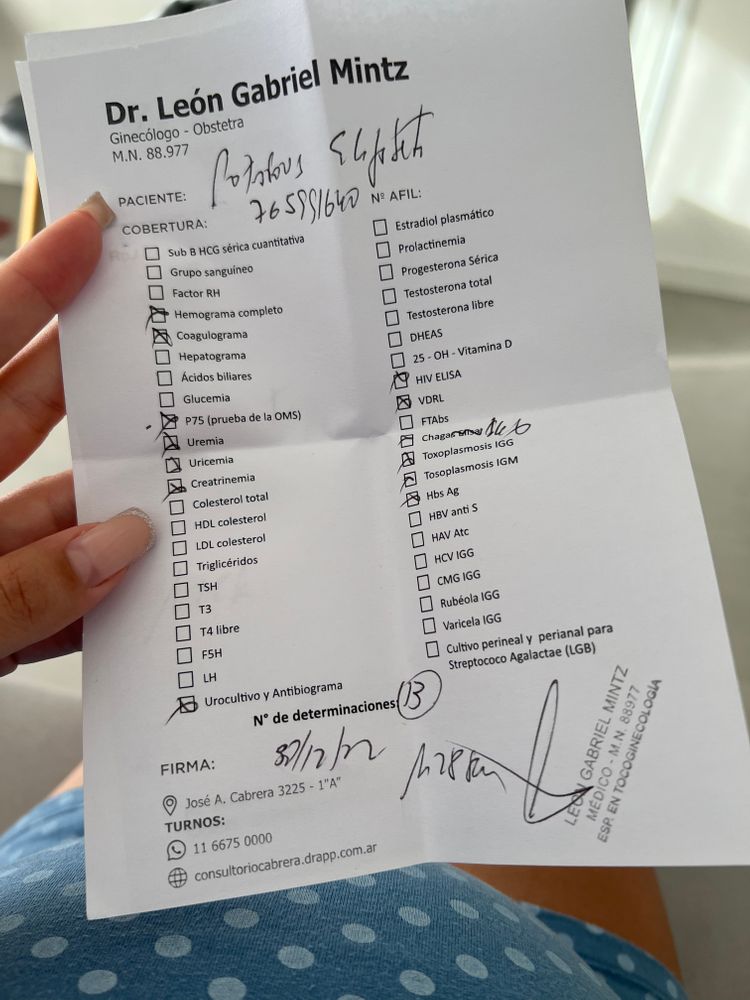 Dr. León Gabriel Mintz
Ginecólogo - Obstetra
M.N. 88.977
PACIENTE:
COBERTURA: 765991640 Nº AFIL:
Sub B HCG sérica cuantitativa
Grupo sanguíneo
Factor RH
Hemograma completo
Coagulograma
Hepatograma
Ácidos biliares
Glucemia
P75 (prueba de la OMS)
Uremia
Uricemia
Creatrinemia
Colesterol total
HDL colesterol
LDL colesterol
Triglicéridos
TSH
T3
T4 libre
F5H
LH
Urocultivo y Antibiograma
Estradiol plasmático
Prolactinemia
Progesterona Sérica
Testosterona total
Testosterona libre
DHEAS
25 - OH - Vitamina D
HIV ELISA
VDRL
FTAbs
Chagas
Toxoplasmosis IGG
Tosoplasmosis IGM
Hbs Ag
HBV anti S
HAV Atc
HCV IGG
CMG IGG
Rubéola IGG
Varicela IGG
Cultivo perineal y perianal para
Streptococo Agalactae (LGB)
N° de determinaciones: 13
FIRMA: 30/12/22
José A. Cabrera 3225 - 1"A"
TURNOS:
11 6675 0000
consultoriocabrera.drapp.com.ar
LEÓN GABRIEL MINTZ
MÉDICO - M.N. 88977
ESP. EN TOCOGINECOLOGÍA